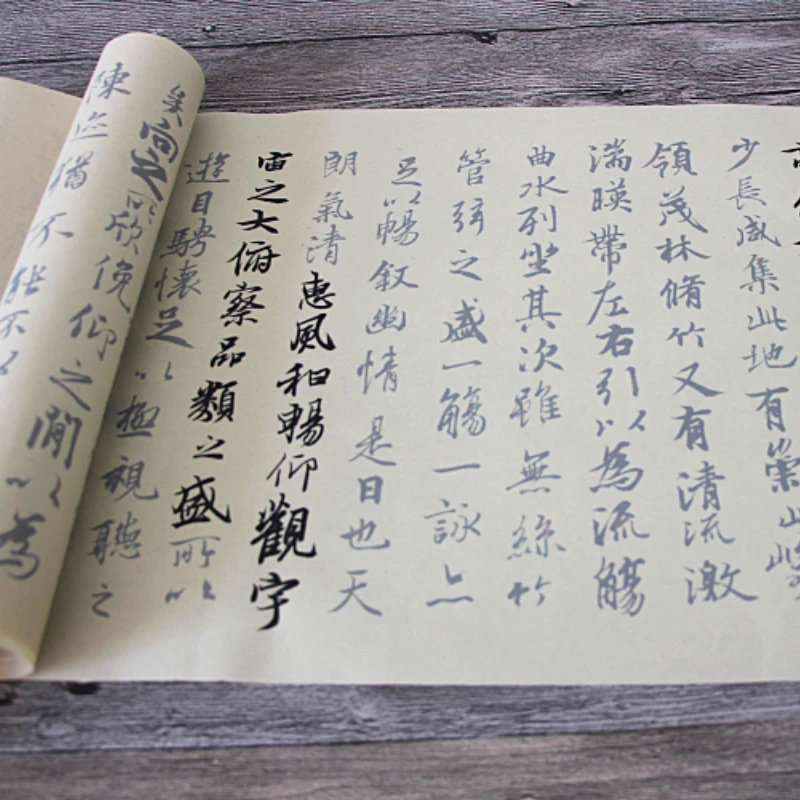 少長咸集此地有崇山峻
領茂林脩竹又有清流激
湍暎帶左右引以為流觴
曲水列坐其次雖無絲竹
管弦之盛一觴一詠亦
足以暢叙幽情是日也天
朗氣清惠風和暢仰觀宇
宙之大俯察品類之盛所以
遊目騁懷足以極視聽之
矣向之所欣俛仰之閒以為
陳迹猶不能不以